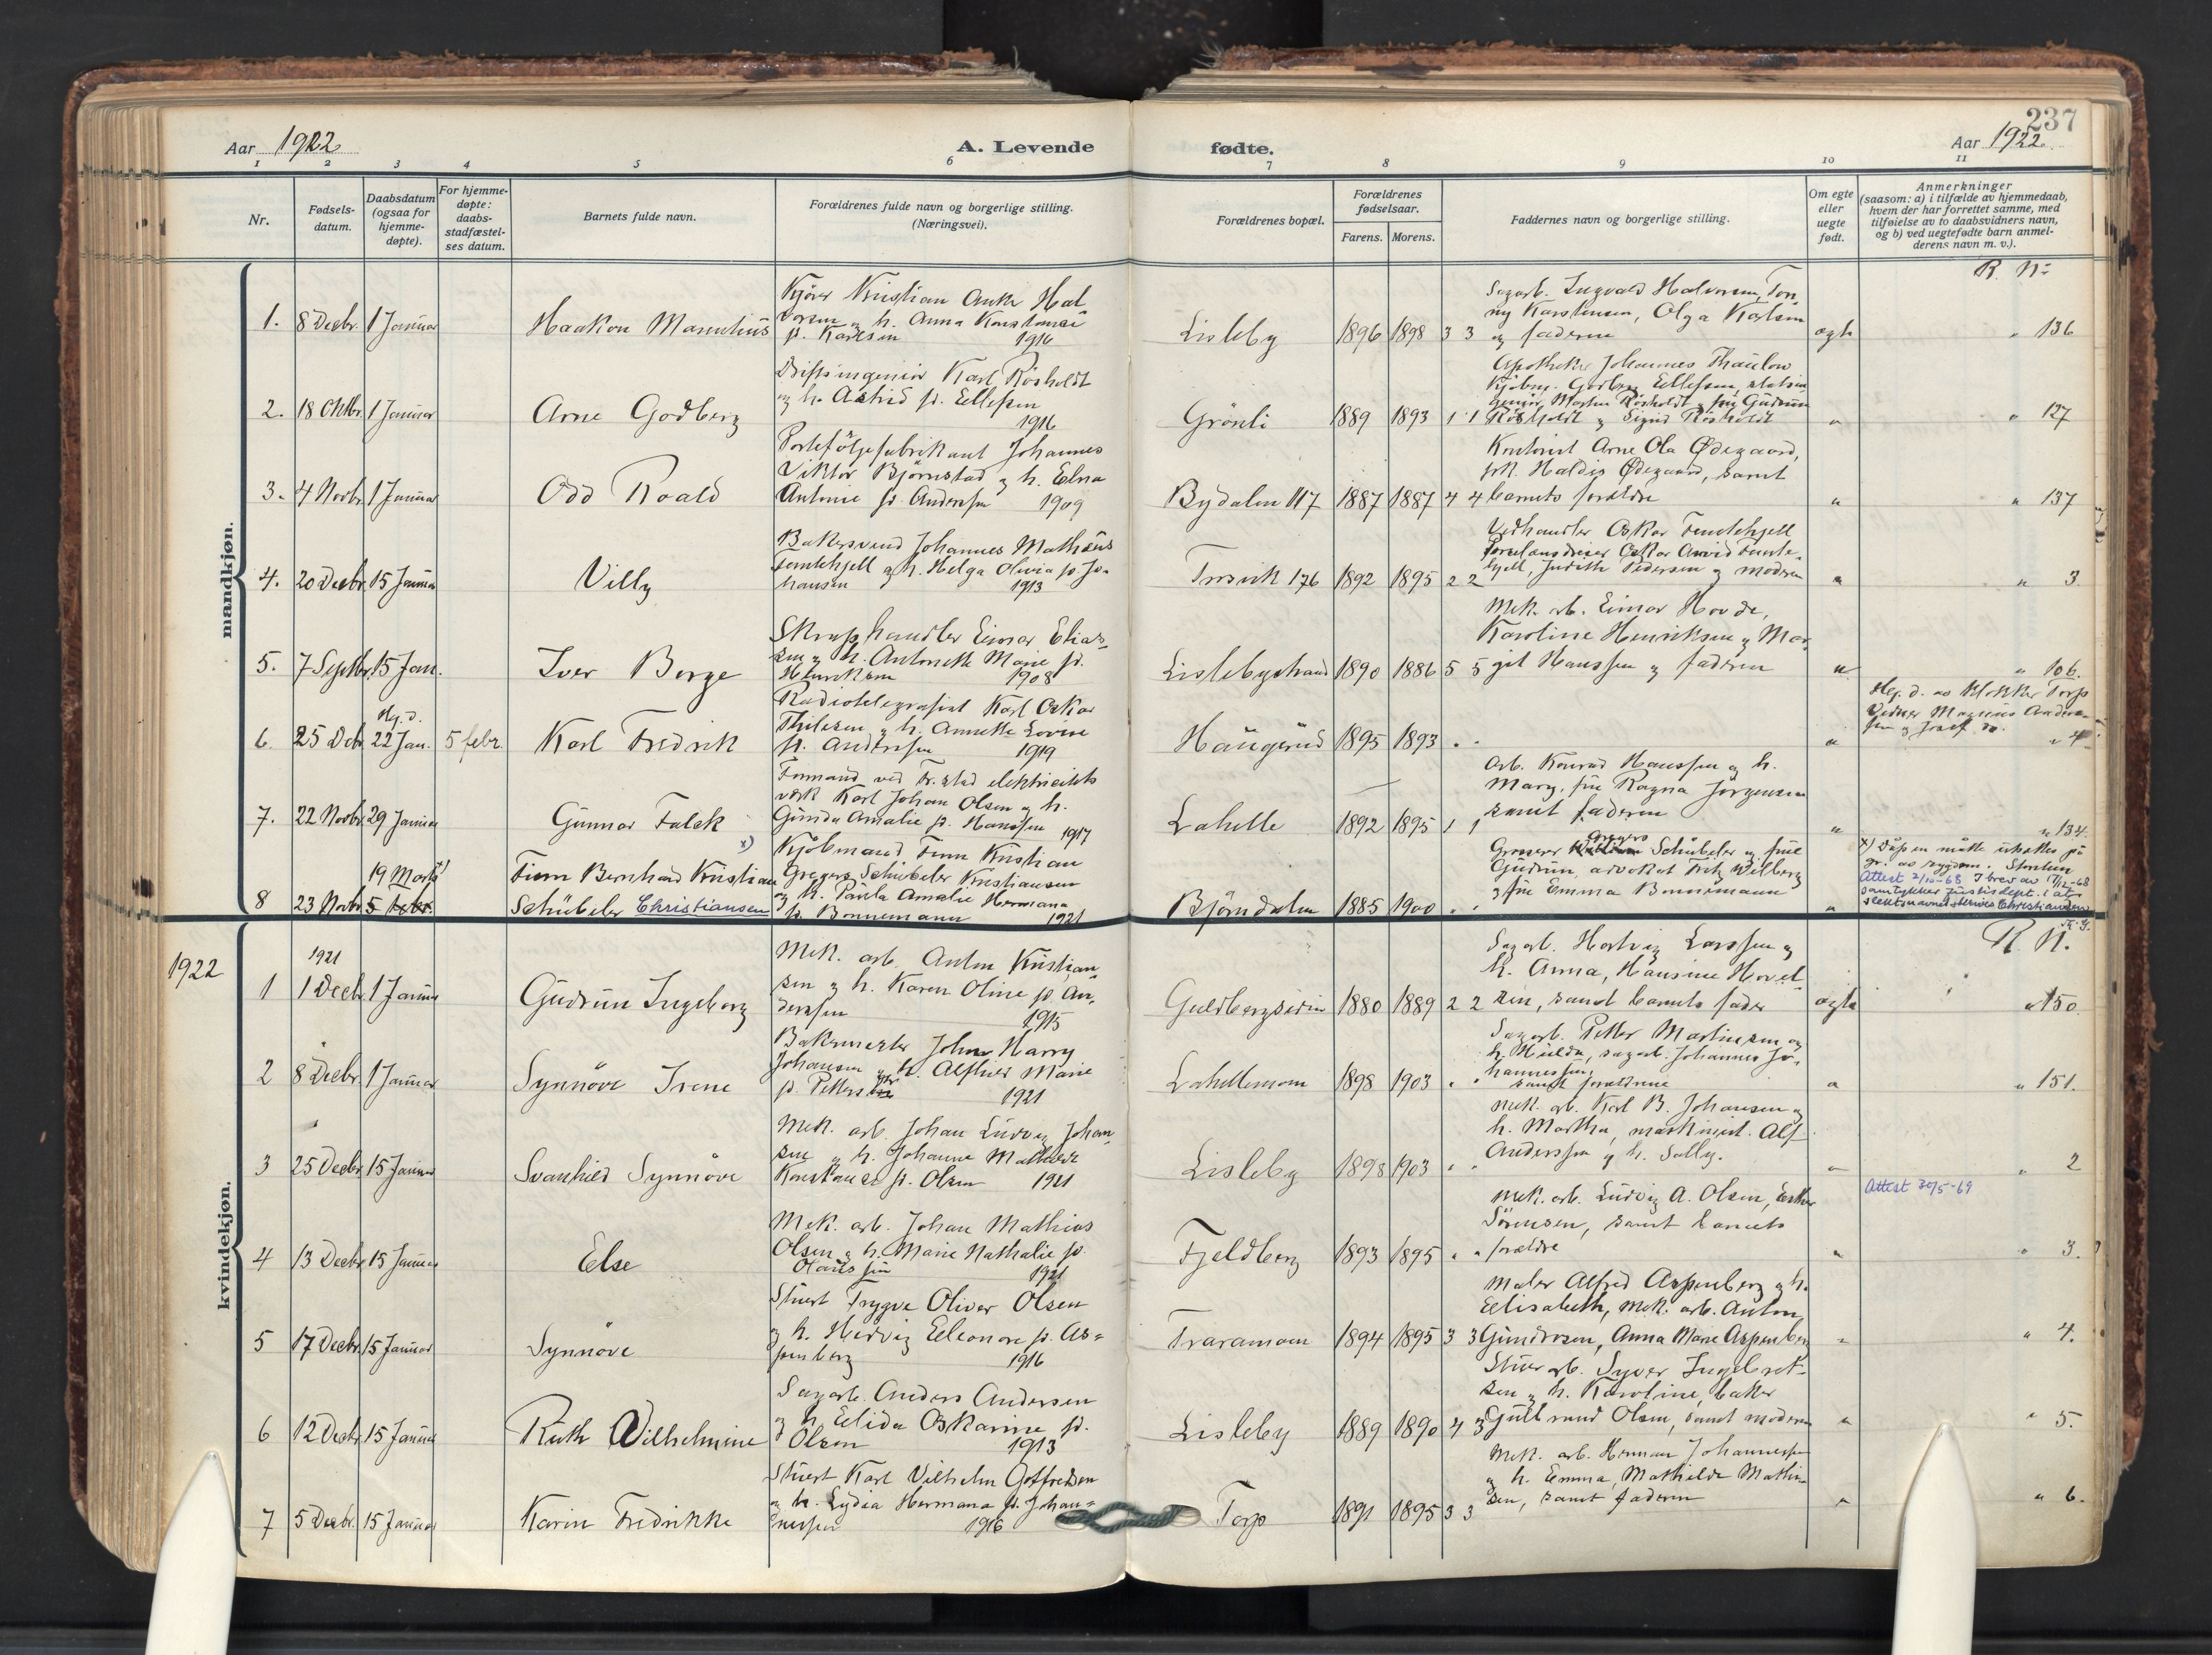 237
Aar 1922
A. Levende
fødte.
Aar 1922
1 2 3 4 5 6 7 8 9 10 11
Nr.
Fødsels-
datum.
Daabsdatum
(ogsaa for
hjemme-
døpte).
For hjemme-
døpte:
daabs-
stadfæstel-
ses datum.
Barnets fulde navn.
Forældrenes fulde navn og borgerlige stilling.
(Næringsvei).
Forældrenes bopæl.
Forældrenes
fødselsaar.
Farens. Morens.
Faddernes navn og borgerlige stilling.
Om egte
eller
uegte
født.
Anmerkninger
(saasom: a) i tilfælde av hjemmedaab,
hvem der har forrettet samme, med
tilføielse av to daabsvidners navn,
og b) ved uegtefødte barn anmel-
derens navn m. v.).
R. Nr
mandkjøn.
1. 8 Decbr. 1 Januar
Haakon Marentius
Kjører Kristian Anker Hal
vorsen og h. Anna Konstanse
f. Karlsen 1916
Lisleby 1896 1898 3 3
Sagarb. Ingvald Halvorsen, Ton
ny Karstensen, Olga Karlsen
og faderen
ægte
" 136
2. 18 Oktbr. 1 Januar
Arne Godberg
Driftsingeniør Karl Rösholdt
og h. Astrid f. Ellefsen
1916
Grönli 1889 1893 1 1
Apotheker Johannes Thaulow
Kjöbm. Godberg Ellefsen, statsin
geniör Martin Rösholdt og frü Güdrün
Rösholdt og Sigrid Rösholdt
"
" 127
3. 4 Novbr. 1 Januar
Odd Roald
Portefölgefabrikant Johannes
Viktor Björnstad og h. Elna
Antonie f. Andersen 1909
Bydalen 117 1887 1887 4 4
Kontorist Arne Ola Ødegaard,
frk. Haldis Ødegaard, samt
barnets forældre
"
" 137
4. 20 Decbr. 15 Januar
Villy
Bakersvend Johannes Mathæus
Femtehjell og h. Helga Olivia f. Jo-
hansen 1913
Trosvik 176 1892 1895 2 2
Vedhandler Oskar Femtehjell
Porselænsdreier Oskar Arvid Femte-
hjell, Judith Pedersen og moderen
"
" 3.
5. 7 Septbr. 15 Jan.
Iver Borge
Skraphandler Einar Elias-
sen og h. Antonette Marie f.
Henriksen 1908
Lislebystrand 1890 1886 5 5
Mek. arb. Einar Hovde,
Karoline Henriksen og Mar-
git Hanssen og faderen
"
" 106.
6. 25 Dcbr Hj. d. 22 Jan. 5 febr.
Karl Fredrik
Radiotelegrafist Karl Oskar
Thilesen og h. Annette Lovise
f. Andersen 1919
Haugerüd 1895 1893 " "
"
Hj. d. av klokker Torp
Vidner Magnus Ander-
sen og Josef do. " 4
7. 22 Novbr. 29 Januar
Günnar Falck
Formand ved Fr.stad elektricitets
verk Karl Johan Olsen og h.
Günda Amalie f. Hanssen 1917
Lahelle 1892 1895 1 1
Arb. Konrad Hanssen og h.
Mary, frü Ragna Jörgensen
samt faderen
"
" 134.
8 23 Novbr. 19 Marts x) 5 febr.
x)
Finn Bernhard Kristian
Schübeler Christiansen
Kjöbmand Finn Kristian
Gregers Schübeler Kristiansen
og h. Paula Amalie Hermana
f. Bonnemann 1921
Björndalen 1885 1900 " "
Grosserer Gregers Schübeler og frue
Güdrün, advokat Fritz Wilberg
og frü Emma Bonnemann
"
x) Daapen maatte utsettes på
gr. av sygdom.
Attest 2/10-68 I brev av 17/12-68
samtykker Justisdept. i at
slektsnavnet skrives Christiansen
1922
kvindekjøn.
R. N.
1921
1 1 Decbr. 1 Januar
Güdrün Ingeborg
Mek. arb. Anton Kristian-
sen og h. Karen Oline f. An-
dersen 1915
Guldbergsidin 1880 1889 2 2
Sagarb. Hartvig Larssen og
h. Anna, Hansine Hovel-
sen, samt barnets fader
ægte
" 150.
2 8 Decbr. 1 Januar
Synnöve Irene
Bakermester John Harry
Johansen og h. Alfhild Marie
f. Petters 1921
Lahellemoen 1898 1903 " "
Sagarb. Petter Martinsen og
h. Hulda, sagarb. Johannes Jo-
hannessen,
samt forældrene
"
" 151.
3 25 Decbr. 15 Januar
Svanhild Synnöve
Mek. arb. Johan Ludvig Johan
sen og h. Johanne Mathilde
Konstanse f. Olsen 1921
Lisleby 1898 1903 " "
Mek. arb. Karl B. Johansen og
h. Martha, maskinist Alf
Anderssen og h. Solly.
"
" 2
Attest 30/5-69
4 13 Decbr. 15 Januar
Else
Mek. arb. Johan Mathias
Olsen og h. Marie Nathalie f.
Olaüssen 1921
Fjeldberg 1893 1895 " "
Mek. arb. Ludvig A. Olsen, Esther
Sörensen, samt barnets
forældre
"
" 3.
5 17 Decbr. 15 Januar
Synnöve
Stuert Trygve Oliver Olsen
og h. Hedvig Eleonore f. As=
penberg 1916
Traramoen 1894 1895 3 3
Maler Alfred Aspenberg og h.
Elisabeth, mek. arb. Anton
Gündersen, Anna Marie Aspenberg
"
" 4.
6 12 Decbr. 15 Januar
Rüth Wilhelmine
Sagarb. Anders Andersen
og h. Elida Oskarine f.
Olsen 1913
Lisleby 1889 1890 4 3
Stuerarb. Syver Ingebret-
sen og h. Karoline, baker
Güllrand Olsen, samt moderen
"
" 5.
7 5 Decbr. 15 Januar
Karin Fredrikke
Stuert Karl Vilhelm Gotfredsen
og h. Lydia Hermana f. Johan=
nessen 1916
Torp 1891 1895 3 3
Mek. arb. Herman Johannessen
og h. Emma, Mathilde Mathi-
sen, samt faderen
"
" 6.